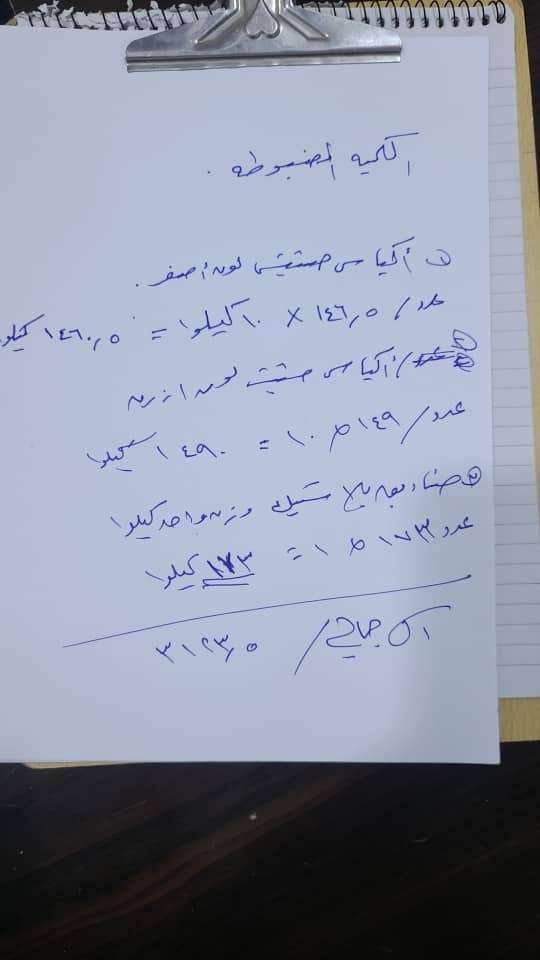 الكميه المضبوطه .
١) أكياس حشيش لون أصفر .
عدد / ١٤٦,٥ × ١٠ كيلوا = ١٤٦٠,٥ كيلو
٢) أكياس حشيش لون ازرق
عدد / ١٤٩ × ١٠ = ١٤٩٠ كيلوا
٣) صناديق بلاستيك وزن واحد كيلوا
عدد ١٧٣ × ١ = ١٧٣ كيلوا
الاجمالي / ٣١٢٣,٥